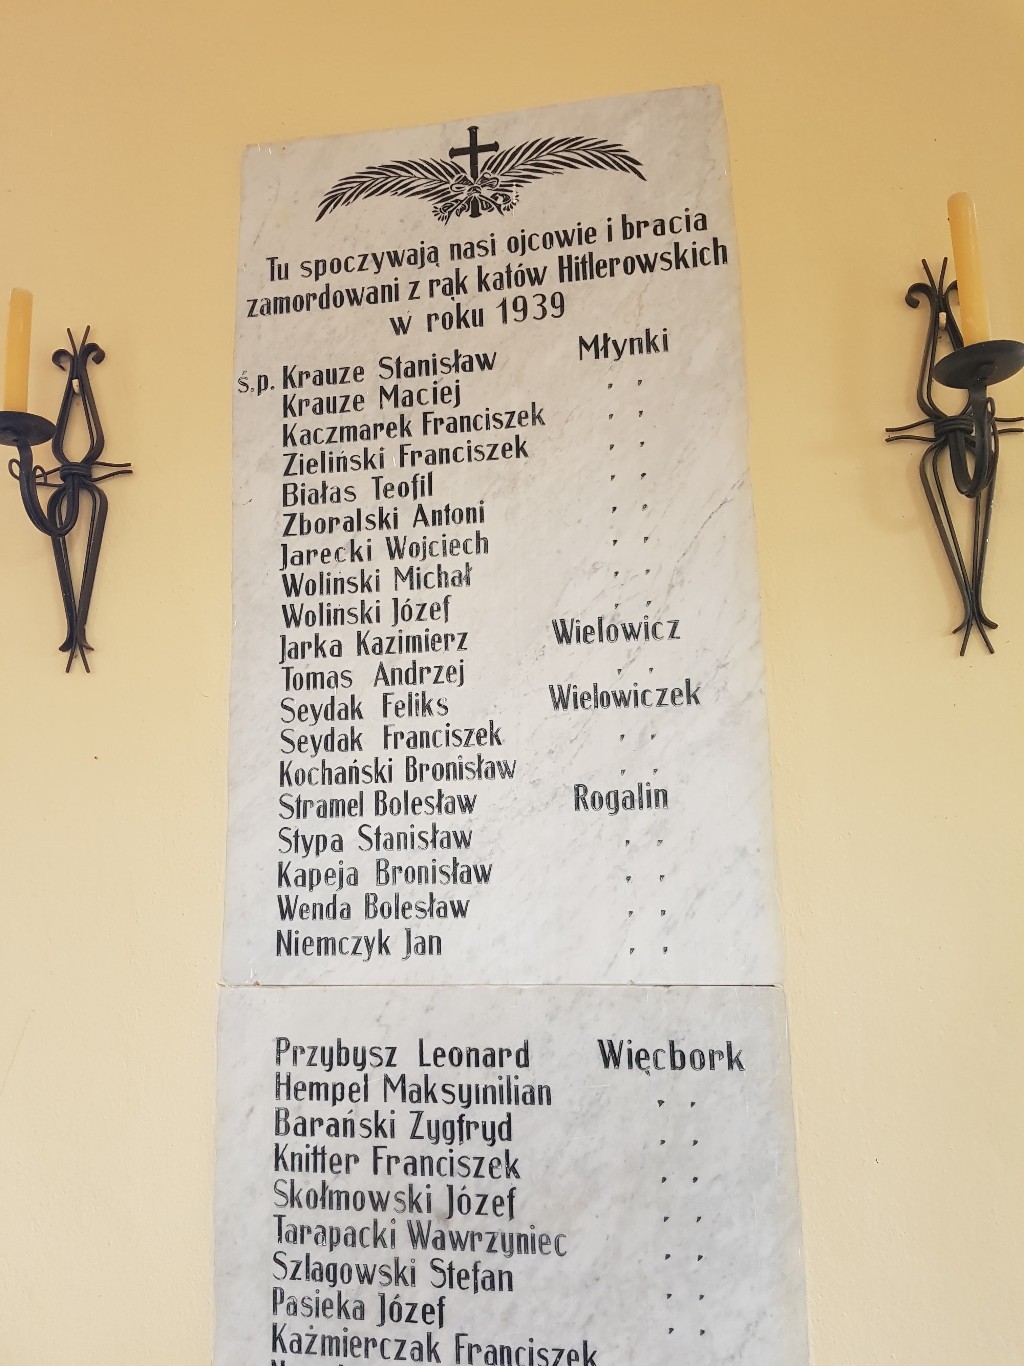 Tu spoczywają nasi ojcowie i bracia
zamordowani z rąk katów Hitlerowskich
w roku 1939
ś.p. Krauze Stanisław Młynki
Krauze Maciej " "
Kaczmarek Franciszek " "
Zieliński Franciszek " "
Białas Teofil " "
Zboralski Antoni " "
Jarecki Wojciech " "
Woliński Michał " "
Woliński Józef " "
Jarka Kazimierz Wielowicz
Tomas Andrzej " "
Seydak Feliks Wielowiczek
Seydak Franciszek " "
Kochański Bronisław " "
Stramel Bolesław Rogalin
Stypa Stanisław " "
Kapeja Bronisław " "
Wenda Bolesław " "
Niemczyk Jan " "
Przybysz Leonard Więcbork
Hempel Maksymilian " "
Barański Zygfryd " "
Knitter Franciszek " "
Skołmowski Józef " "
Tarapacki Wawrzyniec " "
Szlagowski Stefan " "
Pasieka Józef " "
Kaźmierczak Franciszek